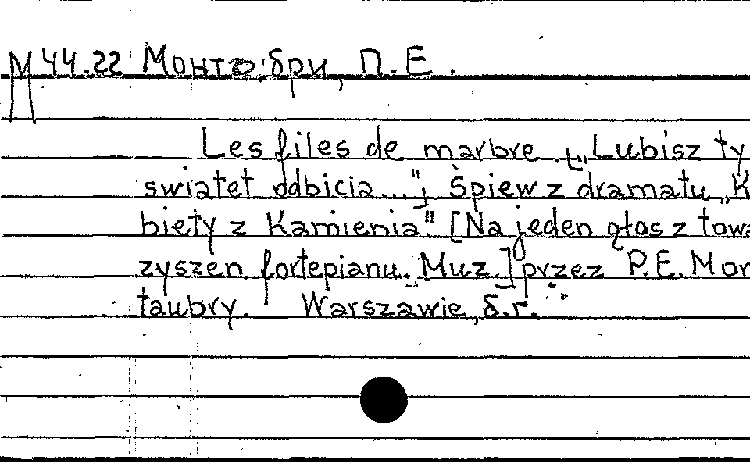 М 44.22 Монтобри, П.Е.
Les files de marbre. „Lubisz ty
swiatet odbicia...“; Śpiew z dramatu „K
biety z Kamienia“ [Na jeden głos z towa
zyszen. fortepianu. Muz.] przez P.E. Mon
taubry. Warszawie, б.г.